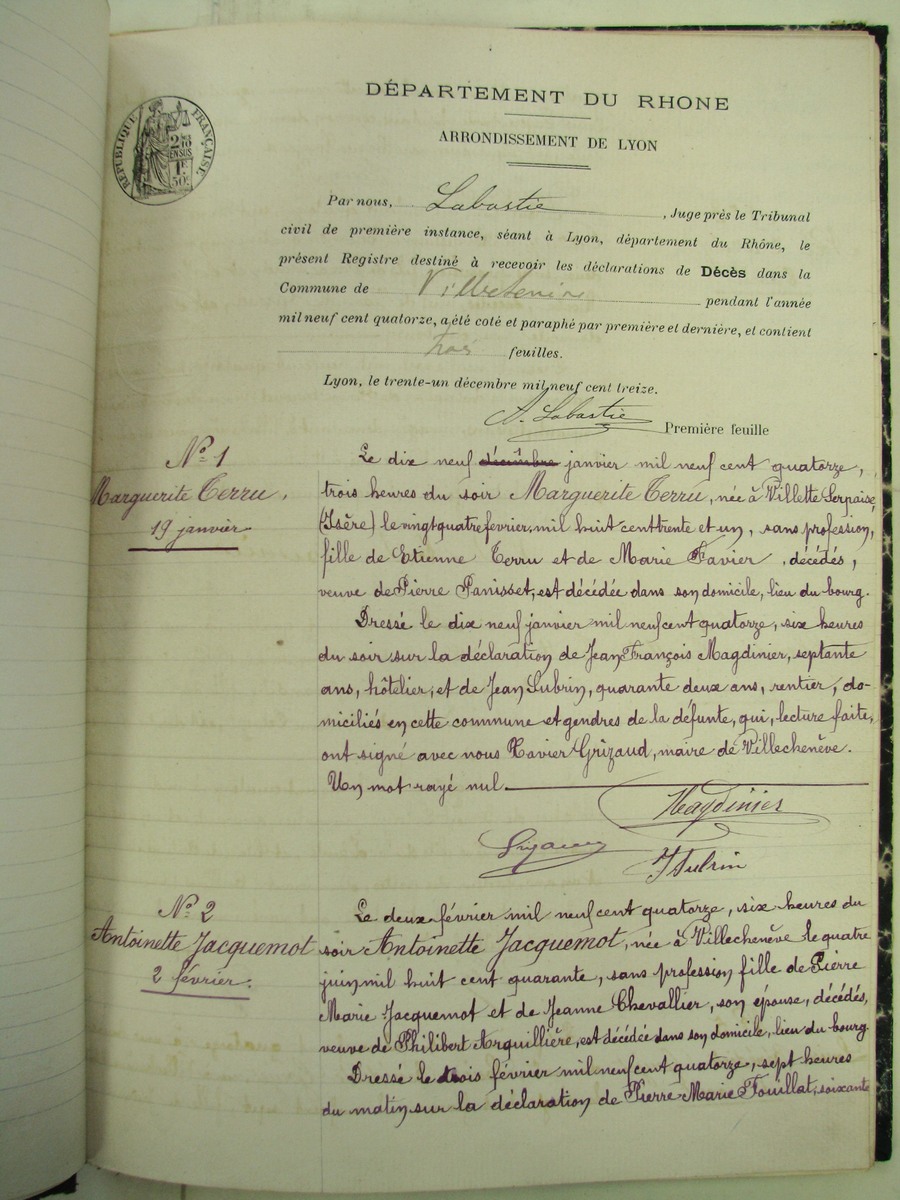 DÉPARTEMENT DU RHONE
ARRONDISSEMENT DE LYON
RÉPUBLIQUE FRANÇAISE
Par nous, Labastie, Juge près le Tribunal
civil de première instance, séant à Lyon, département du Rhône, le
présent Registre destiné à recevoir les déclarations de Décès dans la
Commune de pendant l'année
mil neuf cent quatorze, a été coté et paraphé par première et dernière, et contient
trois feuilles.
Lyon, le trente-un décembre mil neuf cent treize.
A. Labastie
Première feuille
Nº 1
Marguerite Terru,
19 janvier
Le dix neuf décembre janvier mil neuf cent quatorze,
trois heures du soir Marguerite Terru, née à Villette Serpaise
(Isère) le vingt quatre février mil huit cent trente et un, sans profession,
fille de Etienne Terru et de Marie Favier, décédés,
veuve de Pierre Panisset, est décédée dans son domicile, lieu du bourg.
Dressé le dix neuf janvier mil neuf cent quatorze, six heures
du soir sur la déclaration de Jean François Magdinier, septante
ans, hôtelier, et de Jean Subrin, quarante deux ans, rentier, do-
miciliés en cette commune et gendres de la défunte, qui, lecture faite,
ont signé avec nous Xavier Grizaud, maire de Villechenève.
Un mot rayé nul.
Magdinier
JSubrin
Nº 2
Antoinette Jacquemot
2 février.
Le deux février mil neuf cent quatorze, six heures du
soir Antoinette Jacquemot, née à Villechenève le quatre
juin mil huit cent quarante, sans profession fille de Pierre
Marie Jacquemot et de Jeanne Chevallier, son épouse, décédés,
veuve de Philibert Arquillière, est décédée dans son domicile, lieu du bourg
Dressé le trois février mil neuf cent quatorze, sept heures
du matin sur la déclaration de Pierre Marie Fouillat, soixante